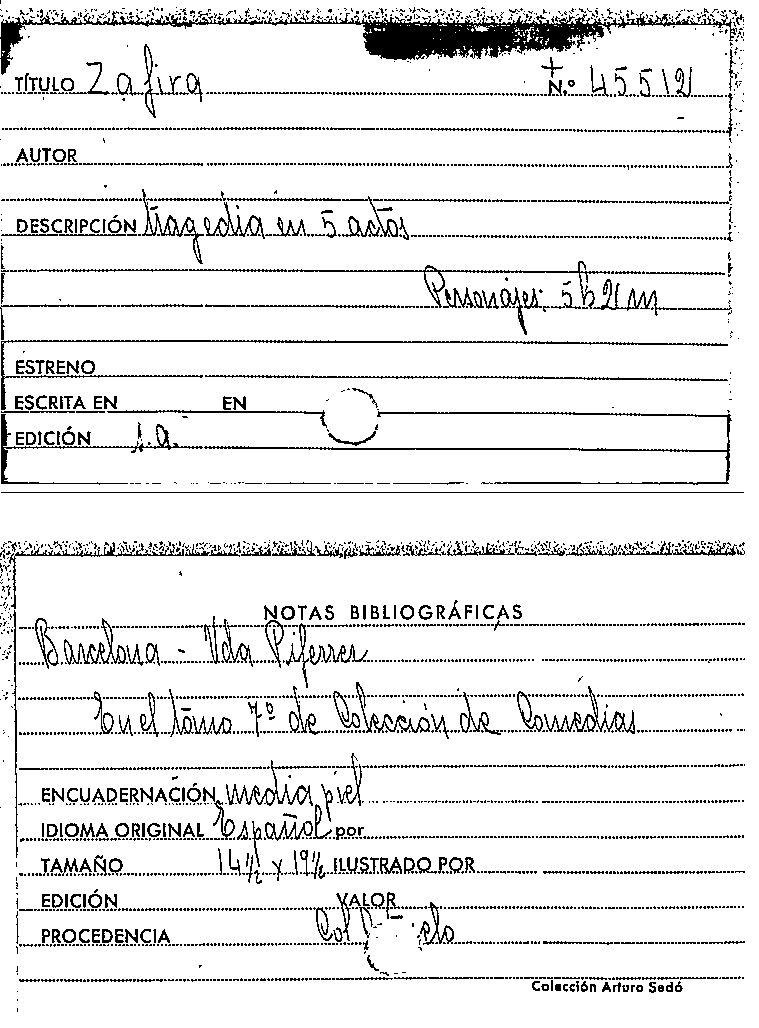 TÍTULO Zafira N.º 45512
AUTOR
DESCRIPCIÓN tragedia en 5 actos
Personajes: 5 h 2 m
ESTRENO
ESCRITA EN EN
EDICIÓN s.a.
NOTAS BIBLIOGRÁFICAS
Barcelona - Vda Piferrer
En el tomo 7º de Colección de Comedias
ENCUADERNACIÓN media piel
IDIOMA ORIGINAL Español por
TAMAÑO 14½ x 19½ ILUSTRADO POR
EDICIÓN VALOR
PROCEDENCIA Col
Colección Arturo Sedó